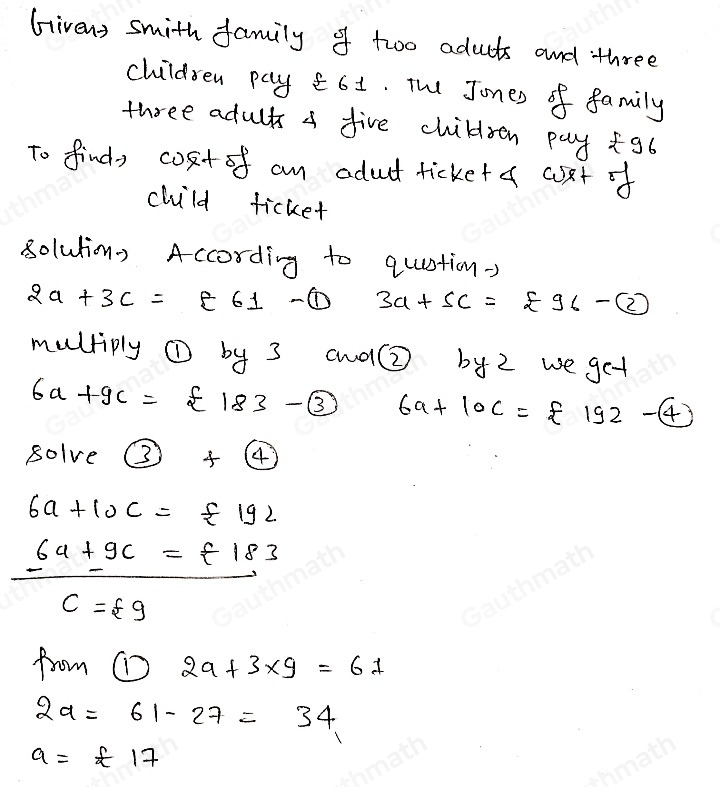 Given→ Smith family of two adults and three
children pay £61. The Jones of family
three adults & five children pay £96
To find→ cost of an adult ticket & cost of
child ticket
Solution→ According to question→
2a + 3c = £61 -① 3a + 5c = £96 -②
multiply ① by 3 and ② by 2 we get
6a + 9c = £183 -③ 6a + 10c = £192 -④
Solve ③ & ④
6a + 10c = £192
6a + 9c = £183
- -
c = £9
from ① 2a + 3×9 = 61
2a = 61 - 27 = 34
a = £17